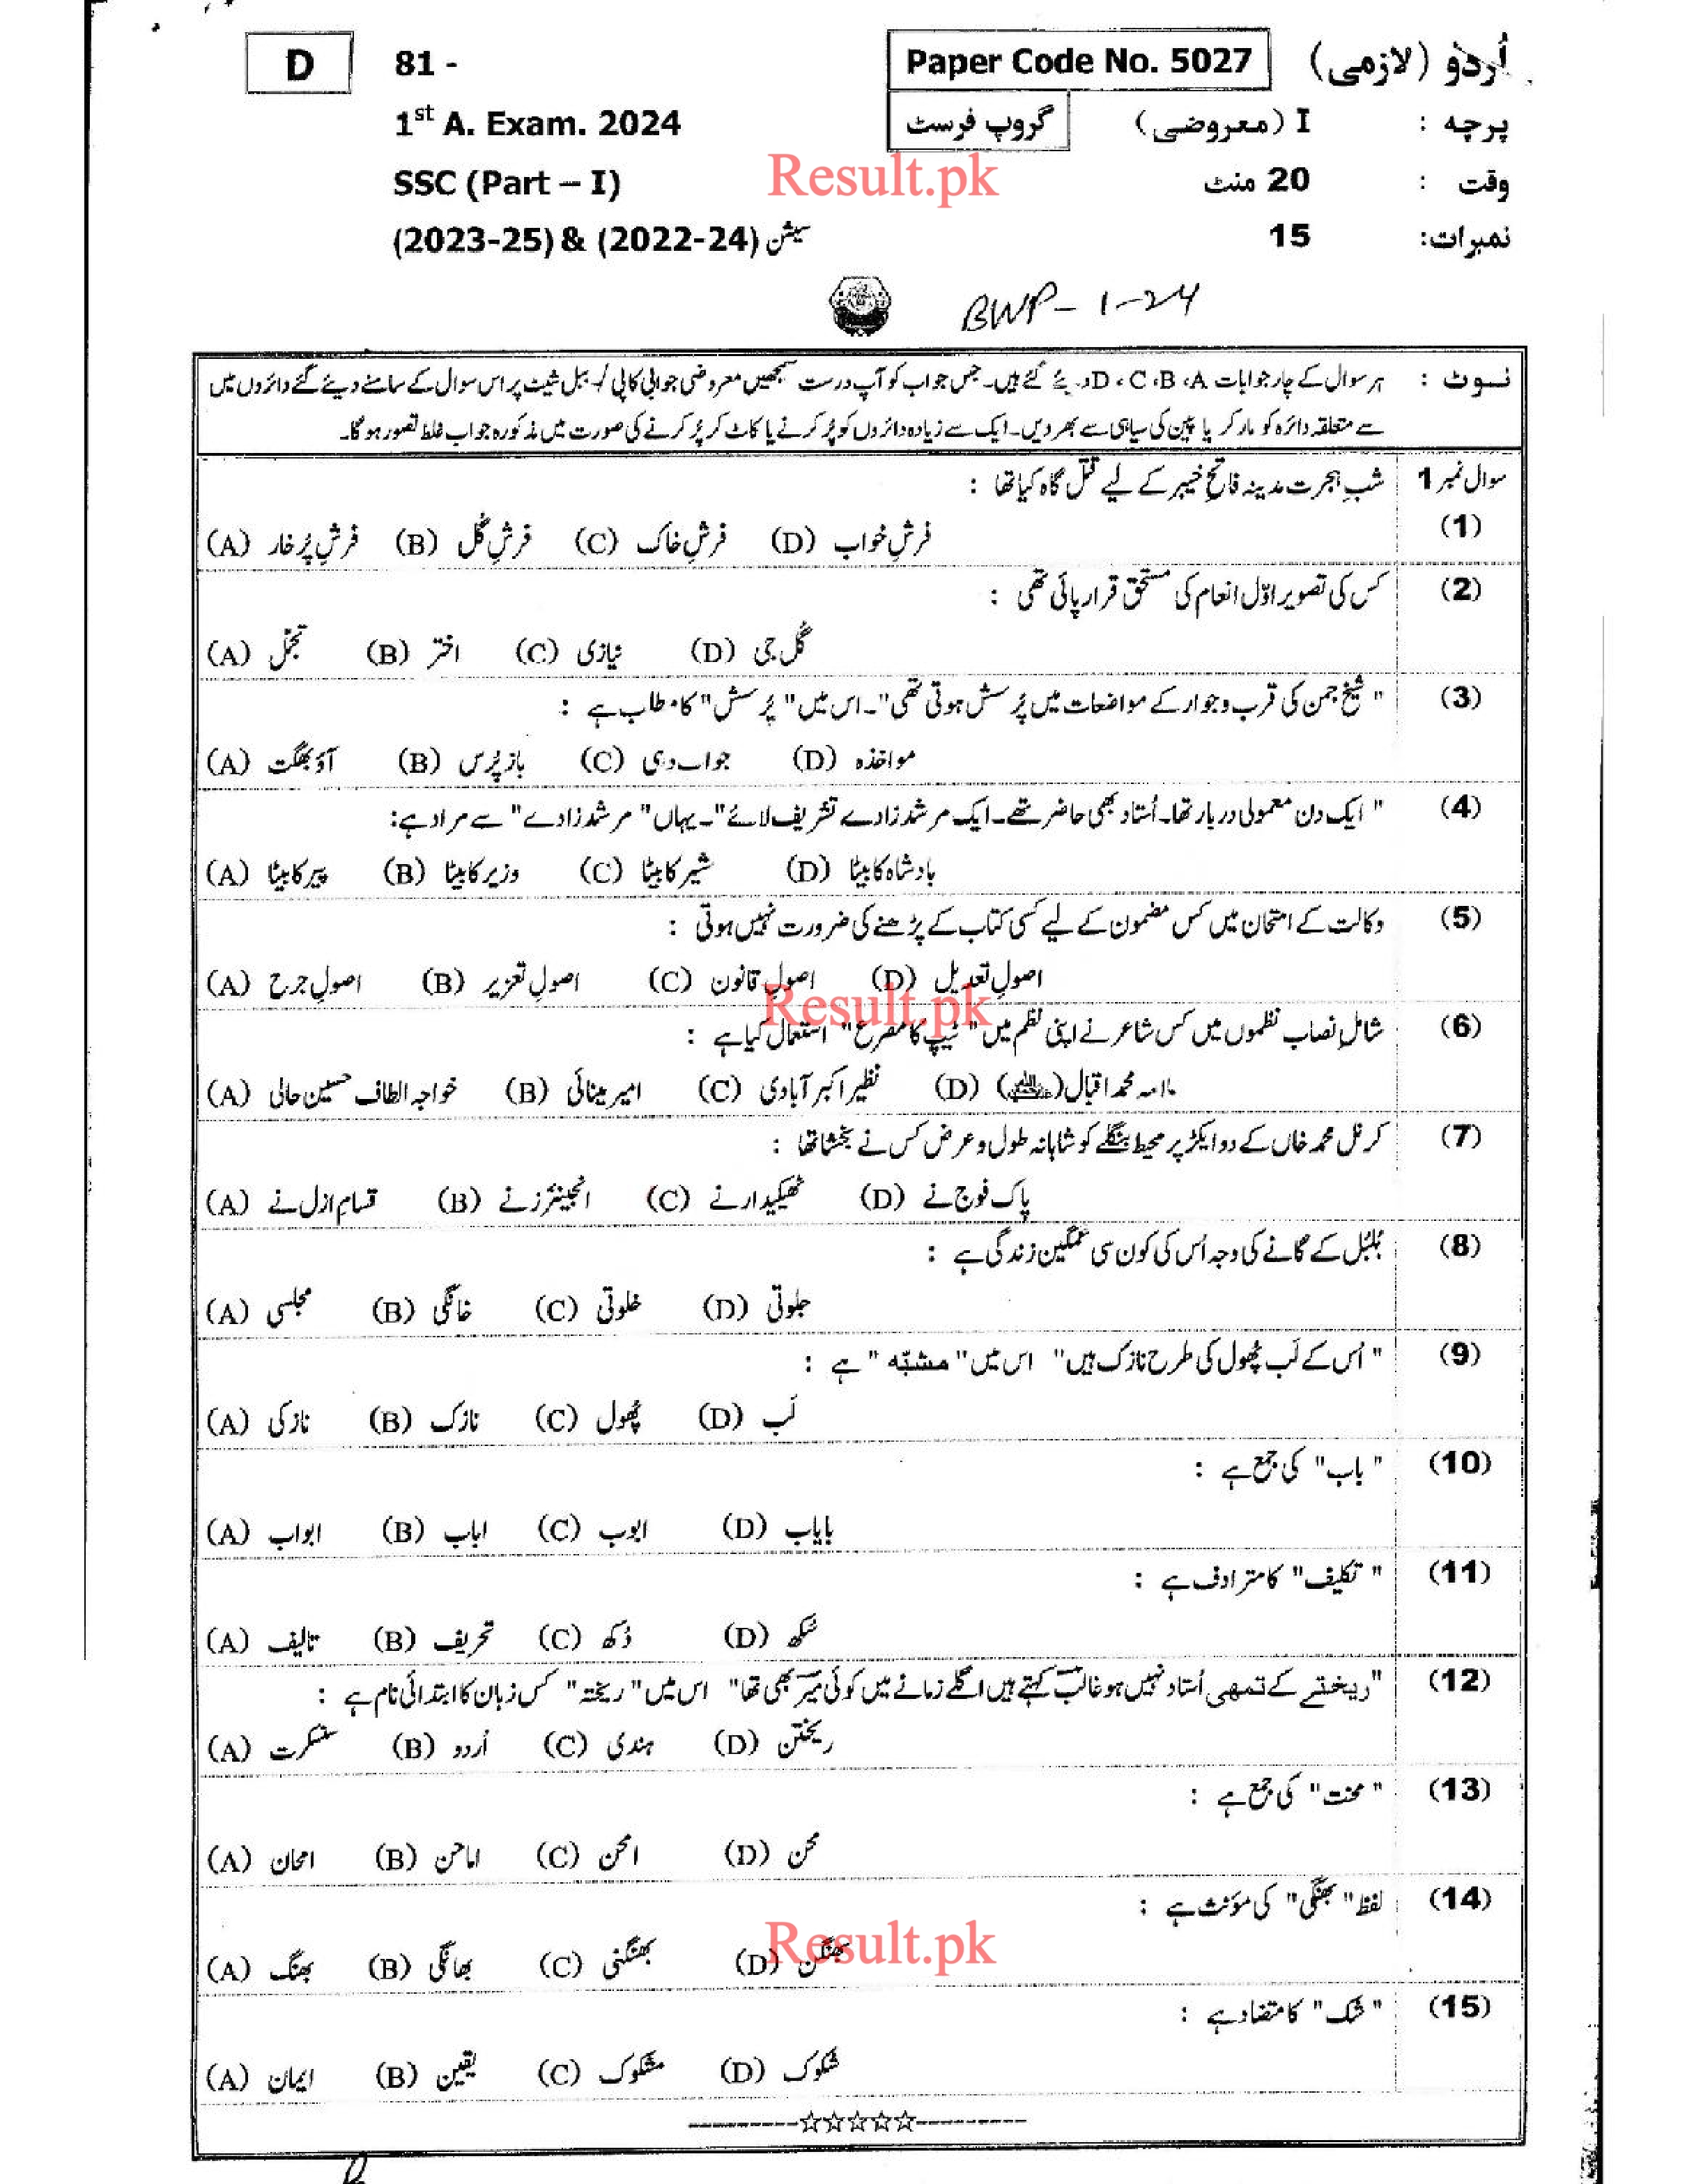 اُردو (لازمی) Paper Code No. 5027 81 - D
پرچہ : I (معروضی) گروپ فرسٹ 1st A. Exam. 2024
وقت : 20 منٹ Result.pk SSC (Part – I)
نمبرات: 15 سیشن (2022-24) & (2023-25)
BWP-1-24
نوٹ : ہر سوال کے چار جوابات A، B، C، D دیئے گئے ہیں۔ جس جواب کو آپ درست سمجھیں معروضی جوابی کاپی / ببل شیٹ پر اس سوال کے سامنے دیئے گئے دائروں میں
سے متعلقہ دائرہ کو مارکر یا پین کی سیاہی سے بھر دیں۔ ایک سے زیادہ دائروں کو پُر کرنے یا کاٹ کر پُر کرنے کی صورت میں مذکورہ جواب غلط تصور ہوگا۔
سوال نمبر 1 شبِ ہجرت مدینہ فاتح خیبر کے لیے قتل گاہ کیا تھا :
(1) فرشِ خواب (D) فرشِ خاک (C) فرشِ گُل (B) فرشِ پُر خار (A)
(2) کس کی تصویر اوّل انعام کی مستحق قرار پائی تھی :
گُل جی (D) نیازی (C) اختر (B) تجمّل (A)
(3) " شیخ جمن کی قرب و جوار کے مواضعات میں پُرسش ہوتی تھی"۔ اس میں "پُرسش" کا مطلب ہے :
مواخذہ (D) جواب دہی (C) باز پُرس (B) آؤ بھگت (A)
(4) " ایک دن معمولی دربار تھا۔ اُستاد بھی حاضر تھے۔ ایک مرشد زادے تشریف لائے"۔ یہاں "مرشد زادے" سے مراد ہے:
بادشاہ کا بیٹا (D) شیر کا بیٹا (C) وزیر کا بیٹا (B) پیر کا بیٹا (A)
(5) وکالت کے امتحان میں کس مضمون کے لیے کسی کتاب کے پڑھنے کی ضرورت نہیں ہوتی :
اصولِ تعدیل (D) اصولِ قانون (C) اصولِ تعزیر (B) اصولِ جرح (A)
Result.pk
(6) شاملِ نصاب نظموں میں کس شاعر نے اپنی نظم میں "ٹیپ کا مصرع" استعمال کیا ہے :
علامہ محمد اقبال (D) نظیر اکبر آبادی (C) امیر مینائی (B) خواجہ الطاف حسین حالی (A)
(7) کرنل محمد خاں کے دو ایکڑ پر محیط بنگلے کو شاہانہ طول و عرض کس نے بخشا تھا :
پاک فوج نے (D) ٹھیکیدار نے (C) انجینئرز نے (B) قسامِ ازل نے (A)
(8) بُلبُل کے گانے کی وجہ اُس کی کون سی غمگین زندگی ہے :
جلوتی (D) خلوتی (C) خانگی (B) مجلسی (A)
(9) " اُس کے لَب پُھول کی طرح نازک ہیں" اس میں "مشبّہ" ہے :
لَب (D) پُھول (C) نازک (B) نازکی (A)
(10) " باب" کی جمع ہے :
بایاب (D) ابوب (C) اباب (B) ابواب (A)
(11) " تکلیف" کا مترادف ہے :
سُکھ (D) دُکھ (C) تحریف (B) تالیف (A)
(12) "ریختے کے تمھی اُستاد نہیں ہو غالبؔ کہتے ہیں اگلے زمانے میں کوئی میرؔ بھی تھا" اس میں "ریختہ" کس زبان کا ابتدائی نام ہے :
ریختن (D) ہندی (C) اُردو (B) سنسکرت (A)
(13) " محنت" کی جمع ہے :
محن (D) امحن (C) اماحن (B) امحان (A)
(14) لفظ "بھنگی" کی مؤنث ہے :
بھنگن (D) بھنگنی (C) بھانگی (B) بھنگ (A)
Result.pk
(15) " شک" کا متضاد ہے :
شکوک (D) مشکوک (C) یقین (B) ایمان (A)
---------☆☆☆☆☆---------